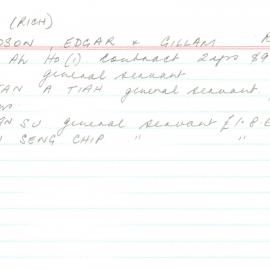 (RICH)
DSON, EDGAR & GILLAM
Ah Ho (1). Contract 2 yrs 89
general servant
TAN A TIAH general servant
AN SU general servant £1.8.6
SENG CHIP " "